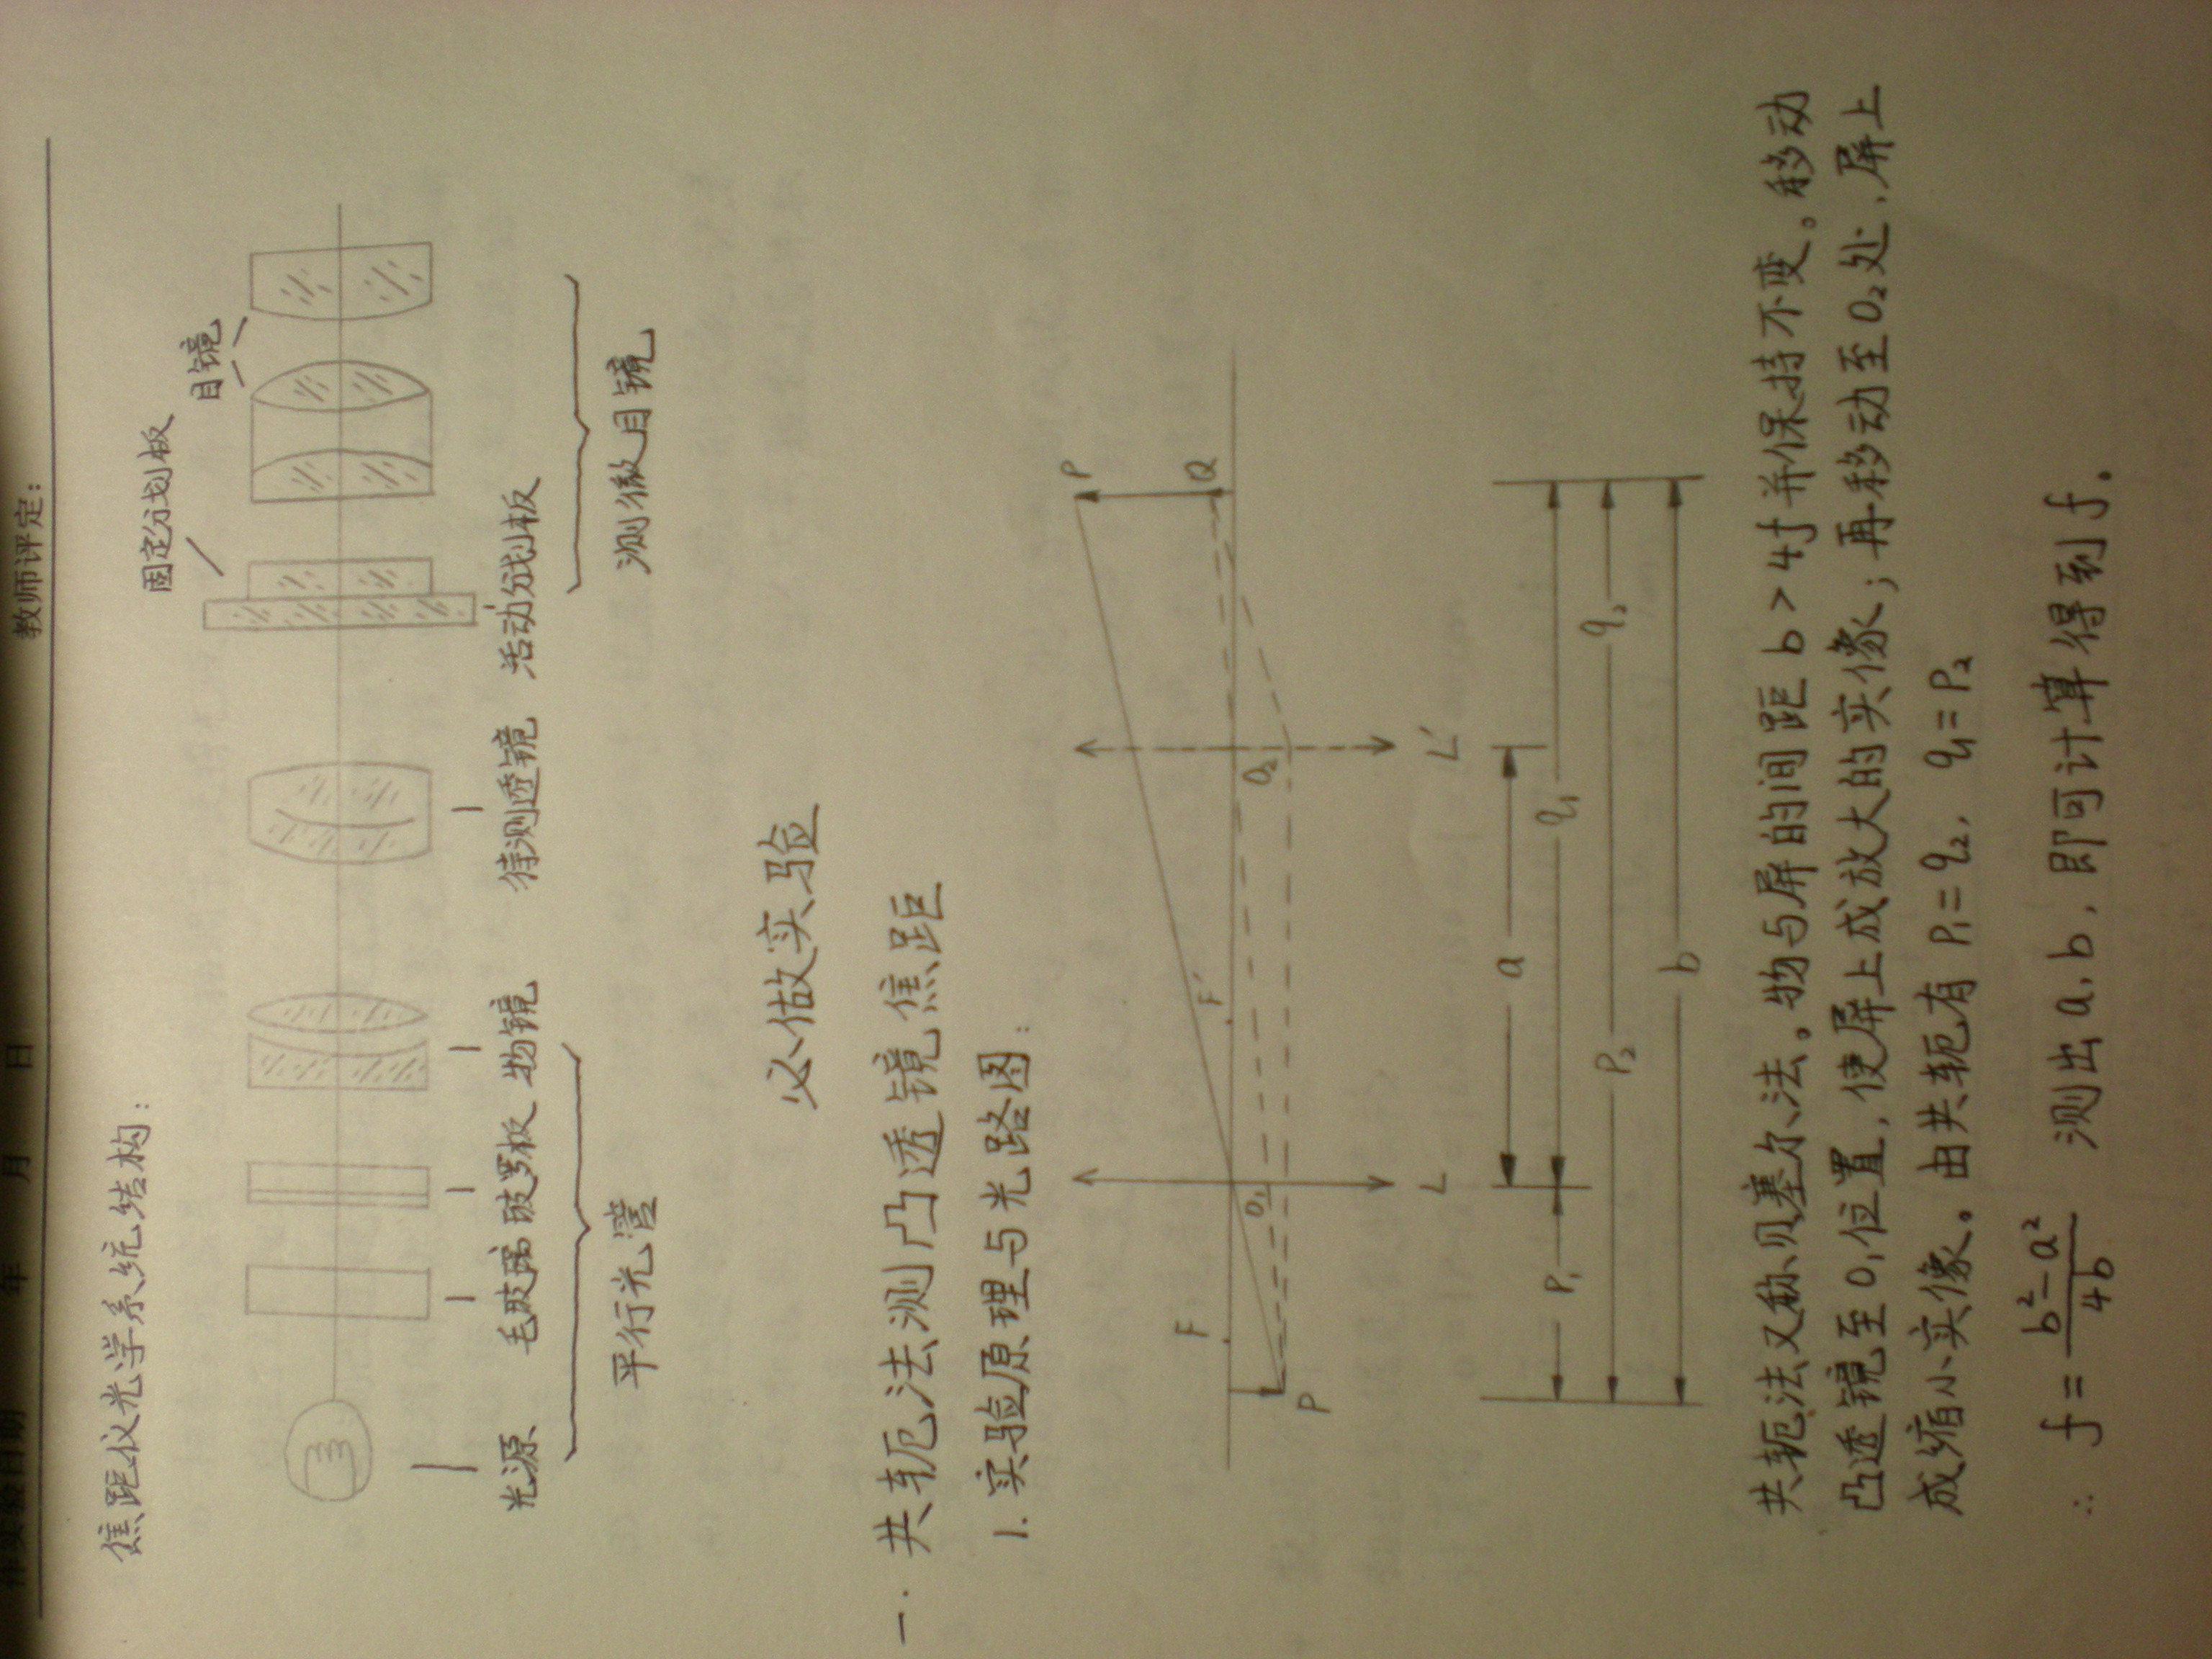 作实验日期 年 月 日 教师评定:
焦距仪光学系统结构:
固定分划板
目镜
光源 毛玻璃 玻罗板 物镜 待测透镜 活动分划板
平行光管 测微目镜
必做实验
一. 共轭法测凸透镜焦距
1. 实验原理与光路图:
P
F F′ Q
O₁ O₂
P
L L′
a
P₁ q₁
P₂ q₂
b
共轭法又称贝塞尔法。物与屏的间距 b > 4f 并保持不变。移动
凸透镜至 O₁位置, 使屏上成放大的实像; 再移动至 O₂处, 屏上
成缩小实像。由共轭有 P₁=q₂, q₁=P₂
∴ f = (b²-a²)/4b 测出 a, b, 即可计算得到 f.